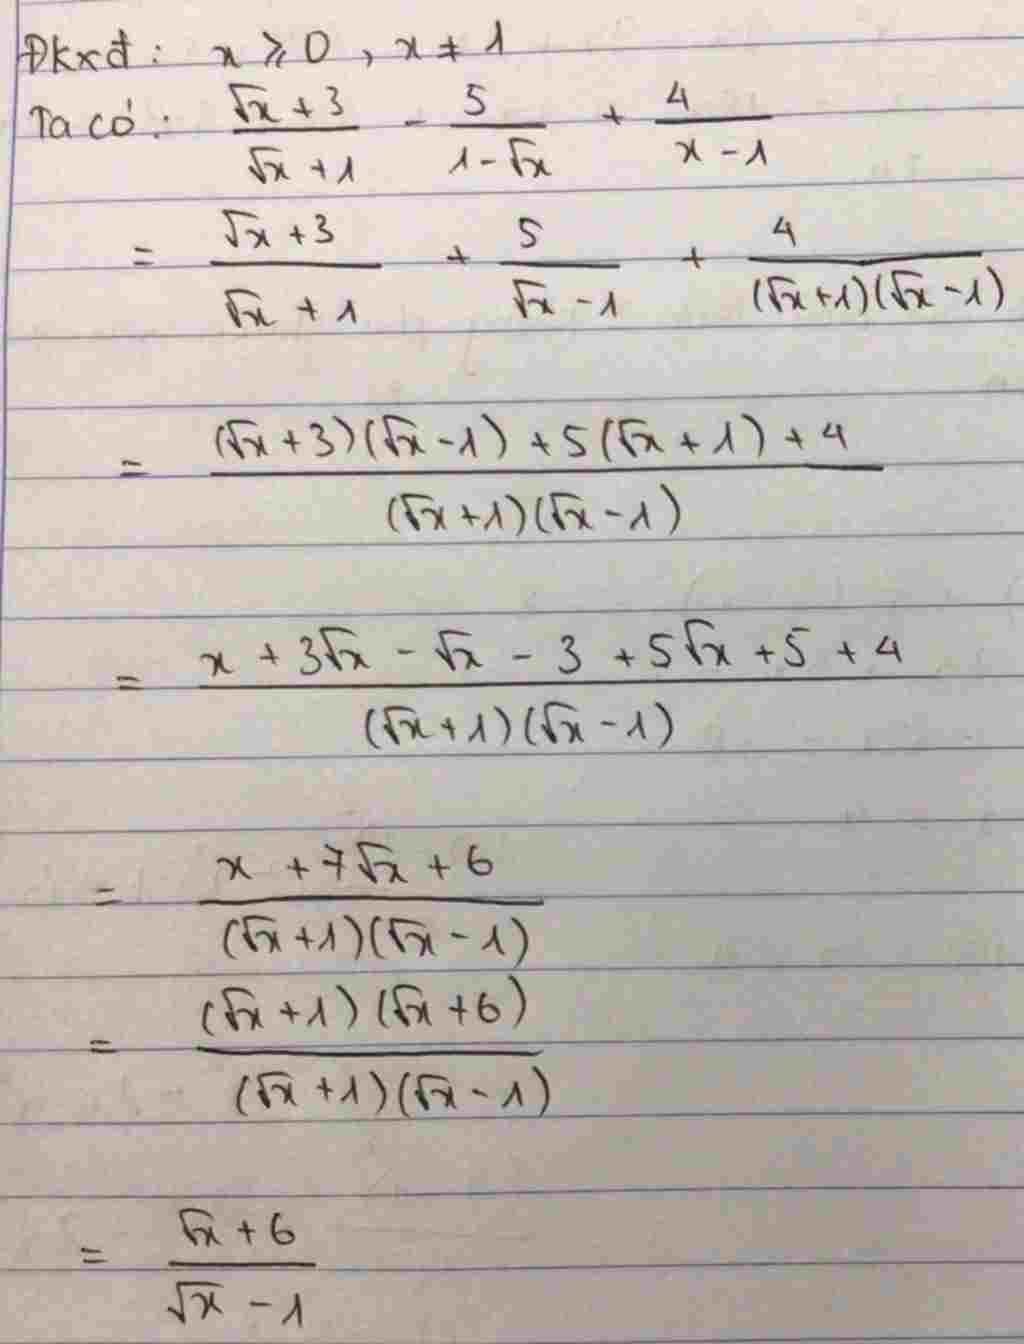 Đkxđ: x ≥ 0, x ≠ 1
Ta có: (√x + 3)/(√x + 1) - 5/(1 - √x) + 4/(x - 1)
= (√x + 3)/(√x + 1) + 5/(√x - 1) + 4/((√x + 1)(√x - 1))
= ((√x + 3)(√x - 1) + 5(√x + 1) + 4)/((√x + 1)(√x - 1))
= (x + 3√x - √x - 3 + 5√x + 5 + 4)/((√x + 1)(√x - 1))
= (x + 7√x + 6)/((√x + 1)(√x - 1))
= ((√x + 1)(√x + 6))/((√x + 1)(√x - 1))
= (√x + 6)/(√x - 1)